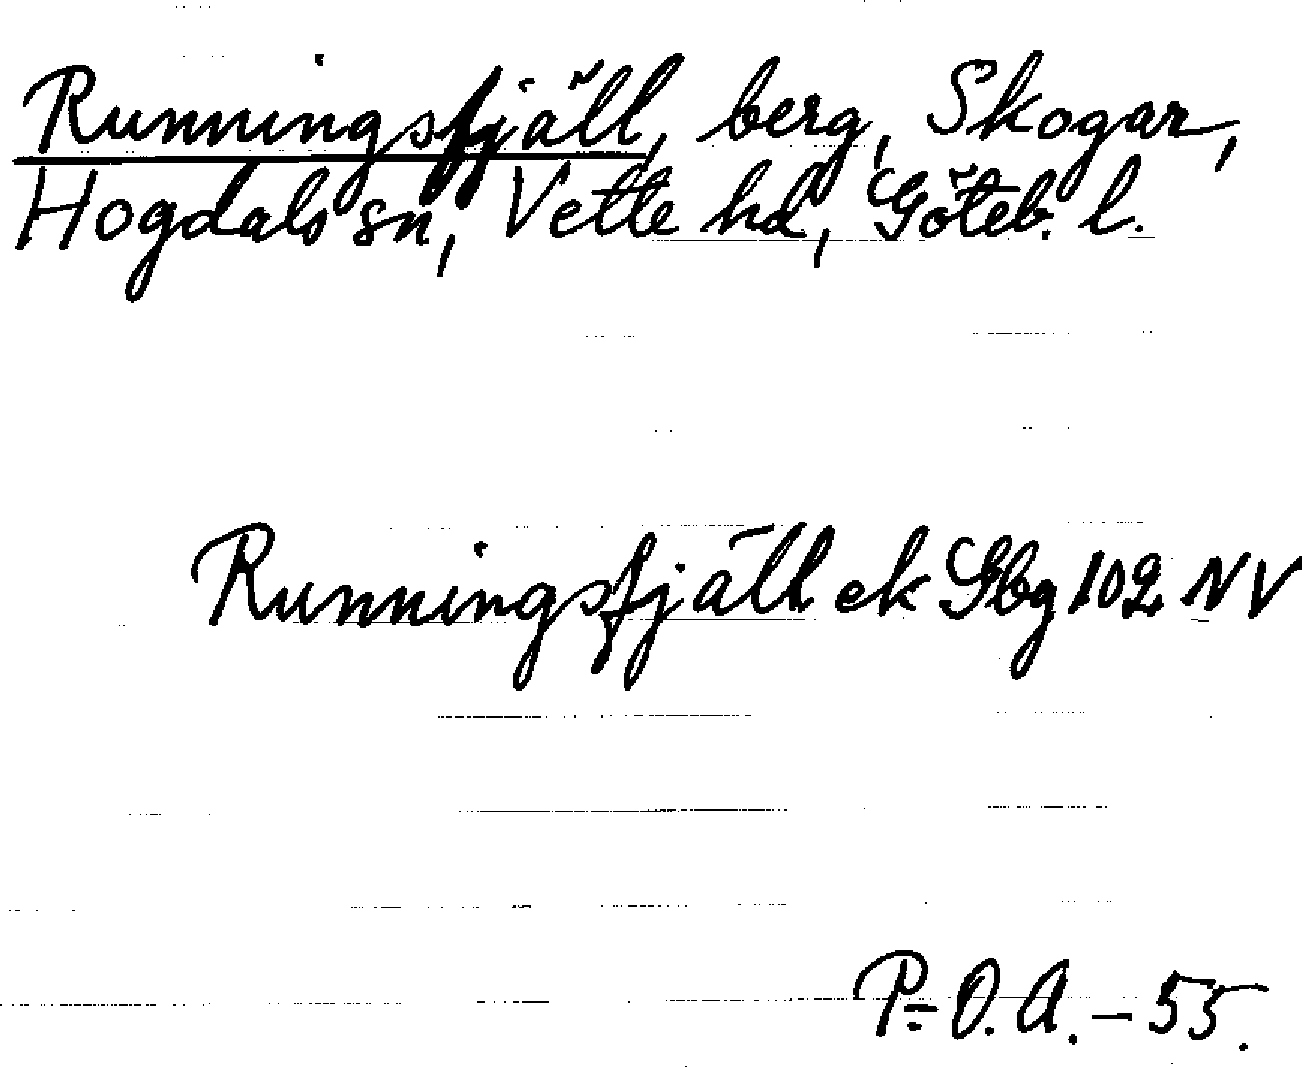 Runningsfjäll, berg, Skogar,
Hogdals sn, Vette hd, Göteb. l.
Runningsfjäll ek Gbg 102 NV
P-O.A.-55.